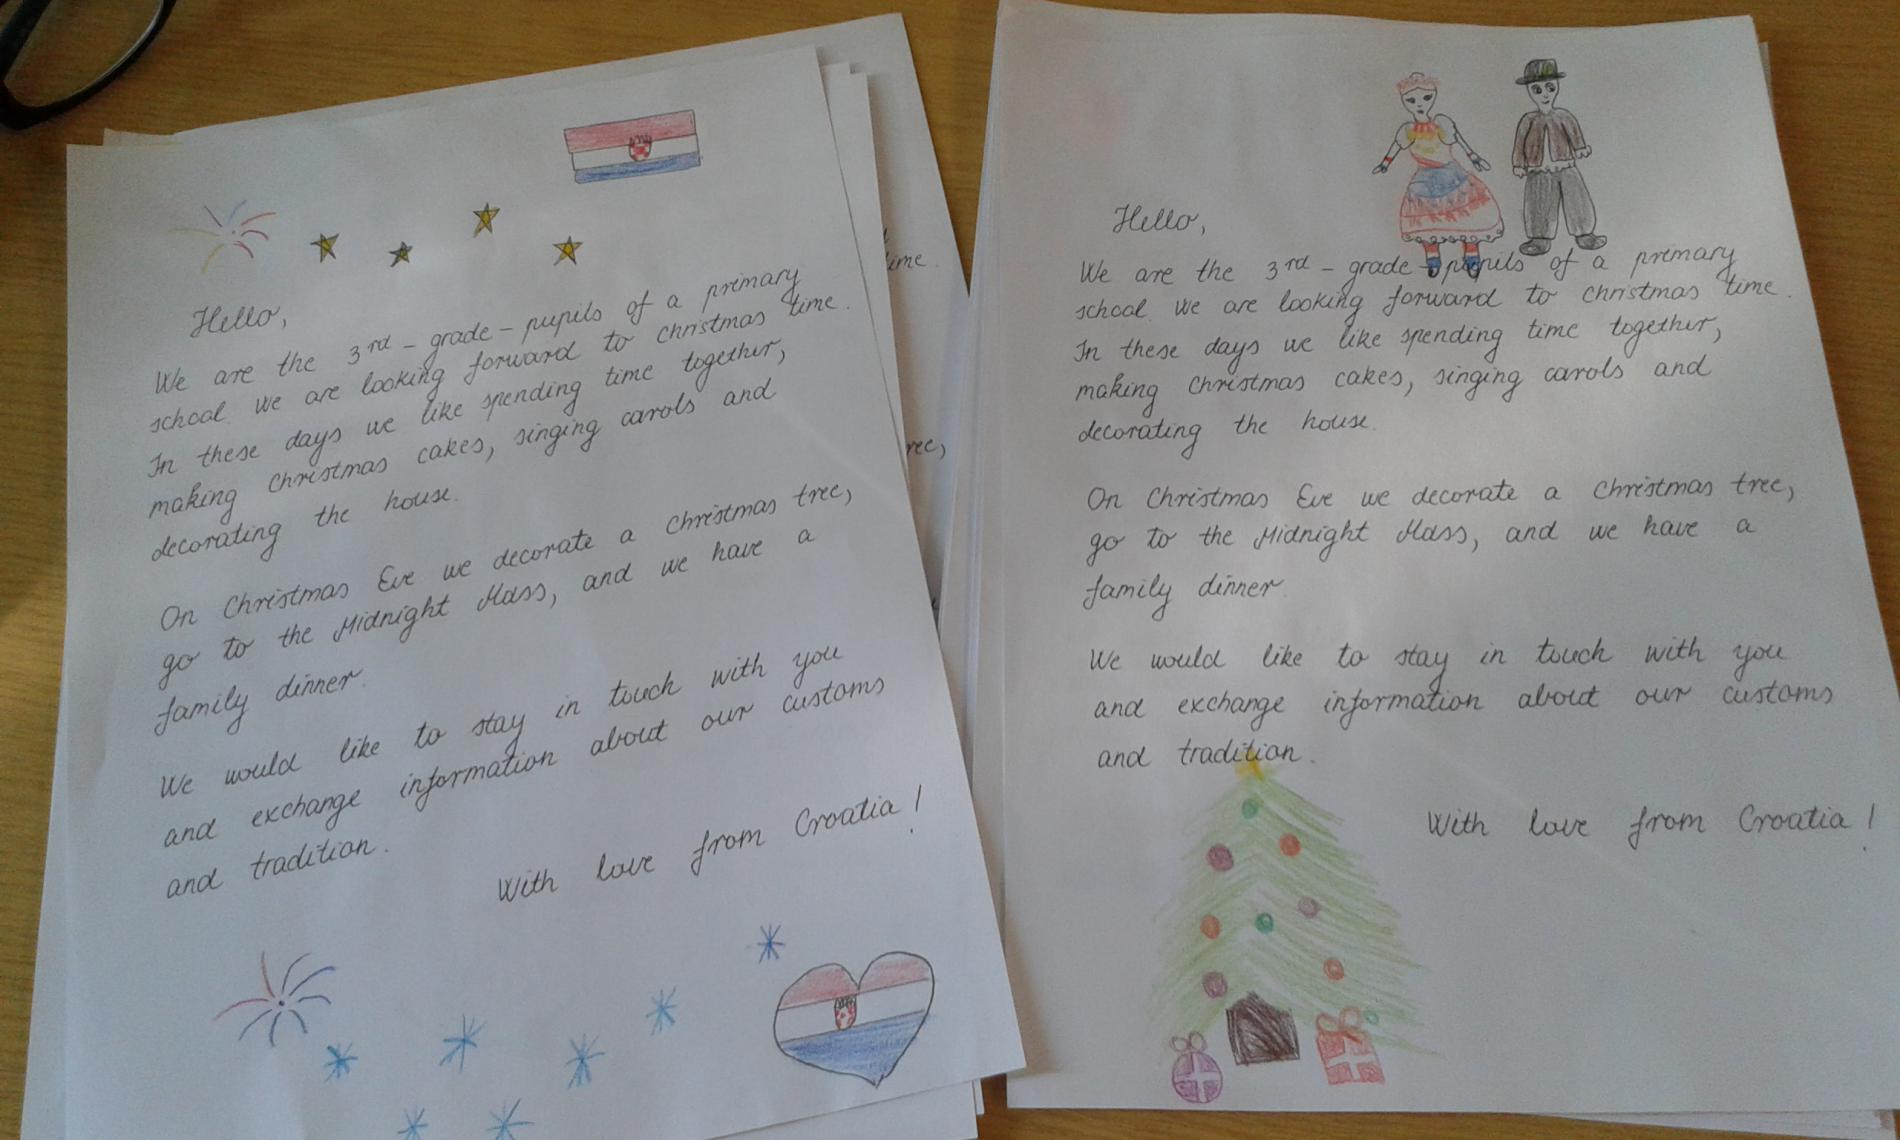 Hello,
We are the 3rd-grade-pupils of a primary
school. We are looking forward to christmas time.
In these days we like spending time together,
making christmas cakes, singing carols and
decorating the house.
On Christmas Eve we decorate a christmas tree,
go to the Midnight Mass, and we have a
family dinner.
We would like to stay in touch with you
and exchange information about our customs
and tradition.
With love from Croatia!
time.
ree,
Hello,
We are the 3rd-grade-pupils of a primary
school. We are looking forward to christmas time.
In these days we like spending time together,
making christmas cakes, singing carols and
decorating the house.
On Christmas Eve we decorate a christmas tree,
go to the Midnight Mass, and we have a
family dinner.
We would like to stay in touch with you
and exchange information about our customs
and tradition.
With love from Croatia!